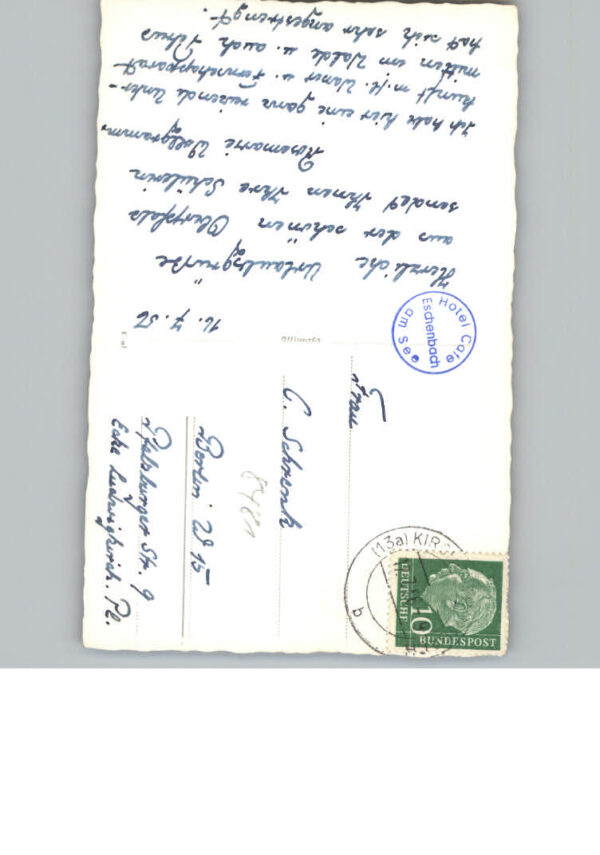 16. 7. 56
Herzliche Urlaubsgrüße
aus der schönen Oberpfalz
sendet Ihnen Ihre Schülerin
Rosemarie
Ich habe hier eine ganz reizende Unter-
kunft m. fl. Wasser u. Fernsehapparat
mitten im Walde u. auch Petrus
hat sich sehr angestrengt.
Hotel Cafe
Eschenbach
am See
Frau
C. Schrenk
Berlin W 15
Pfalzburger Str. 9
Ecke Ludwigkirch. Pl.
(13a)
b
10
DEUTSCHE
BUNDESPOST